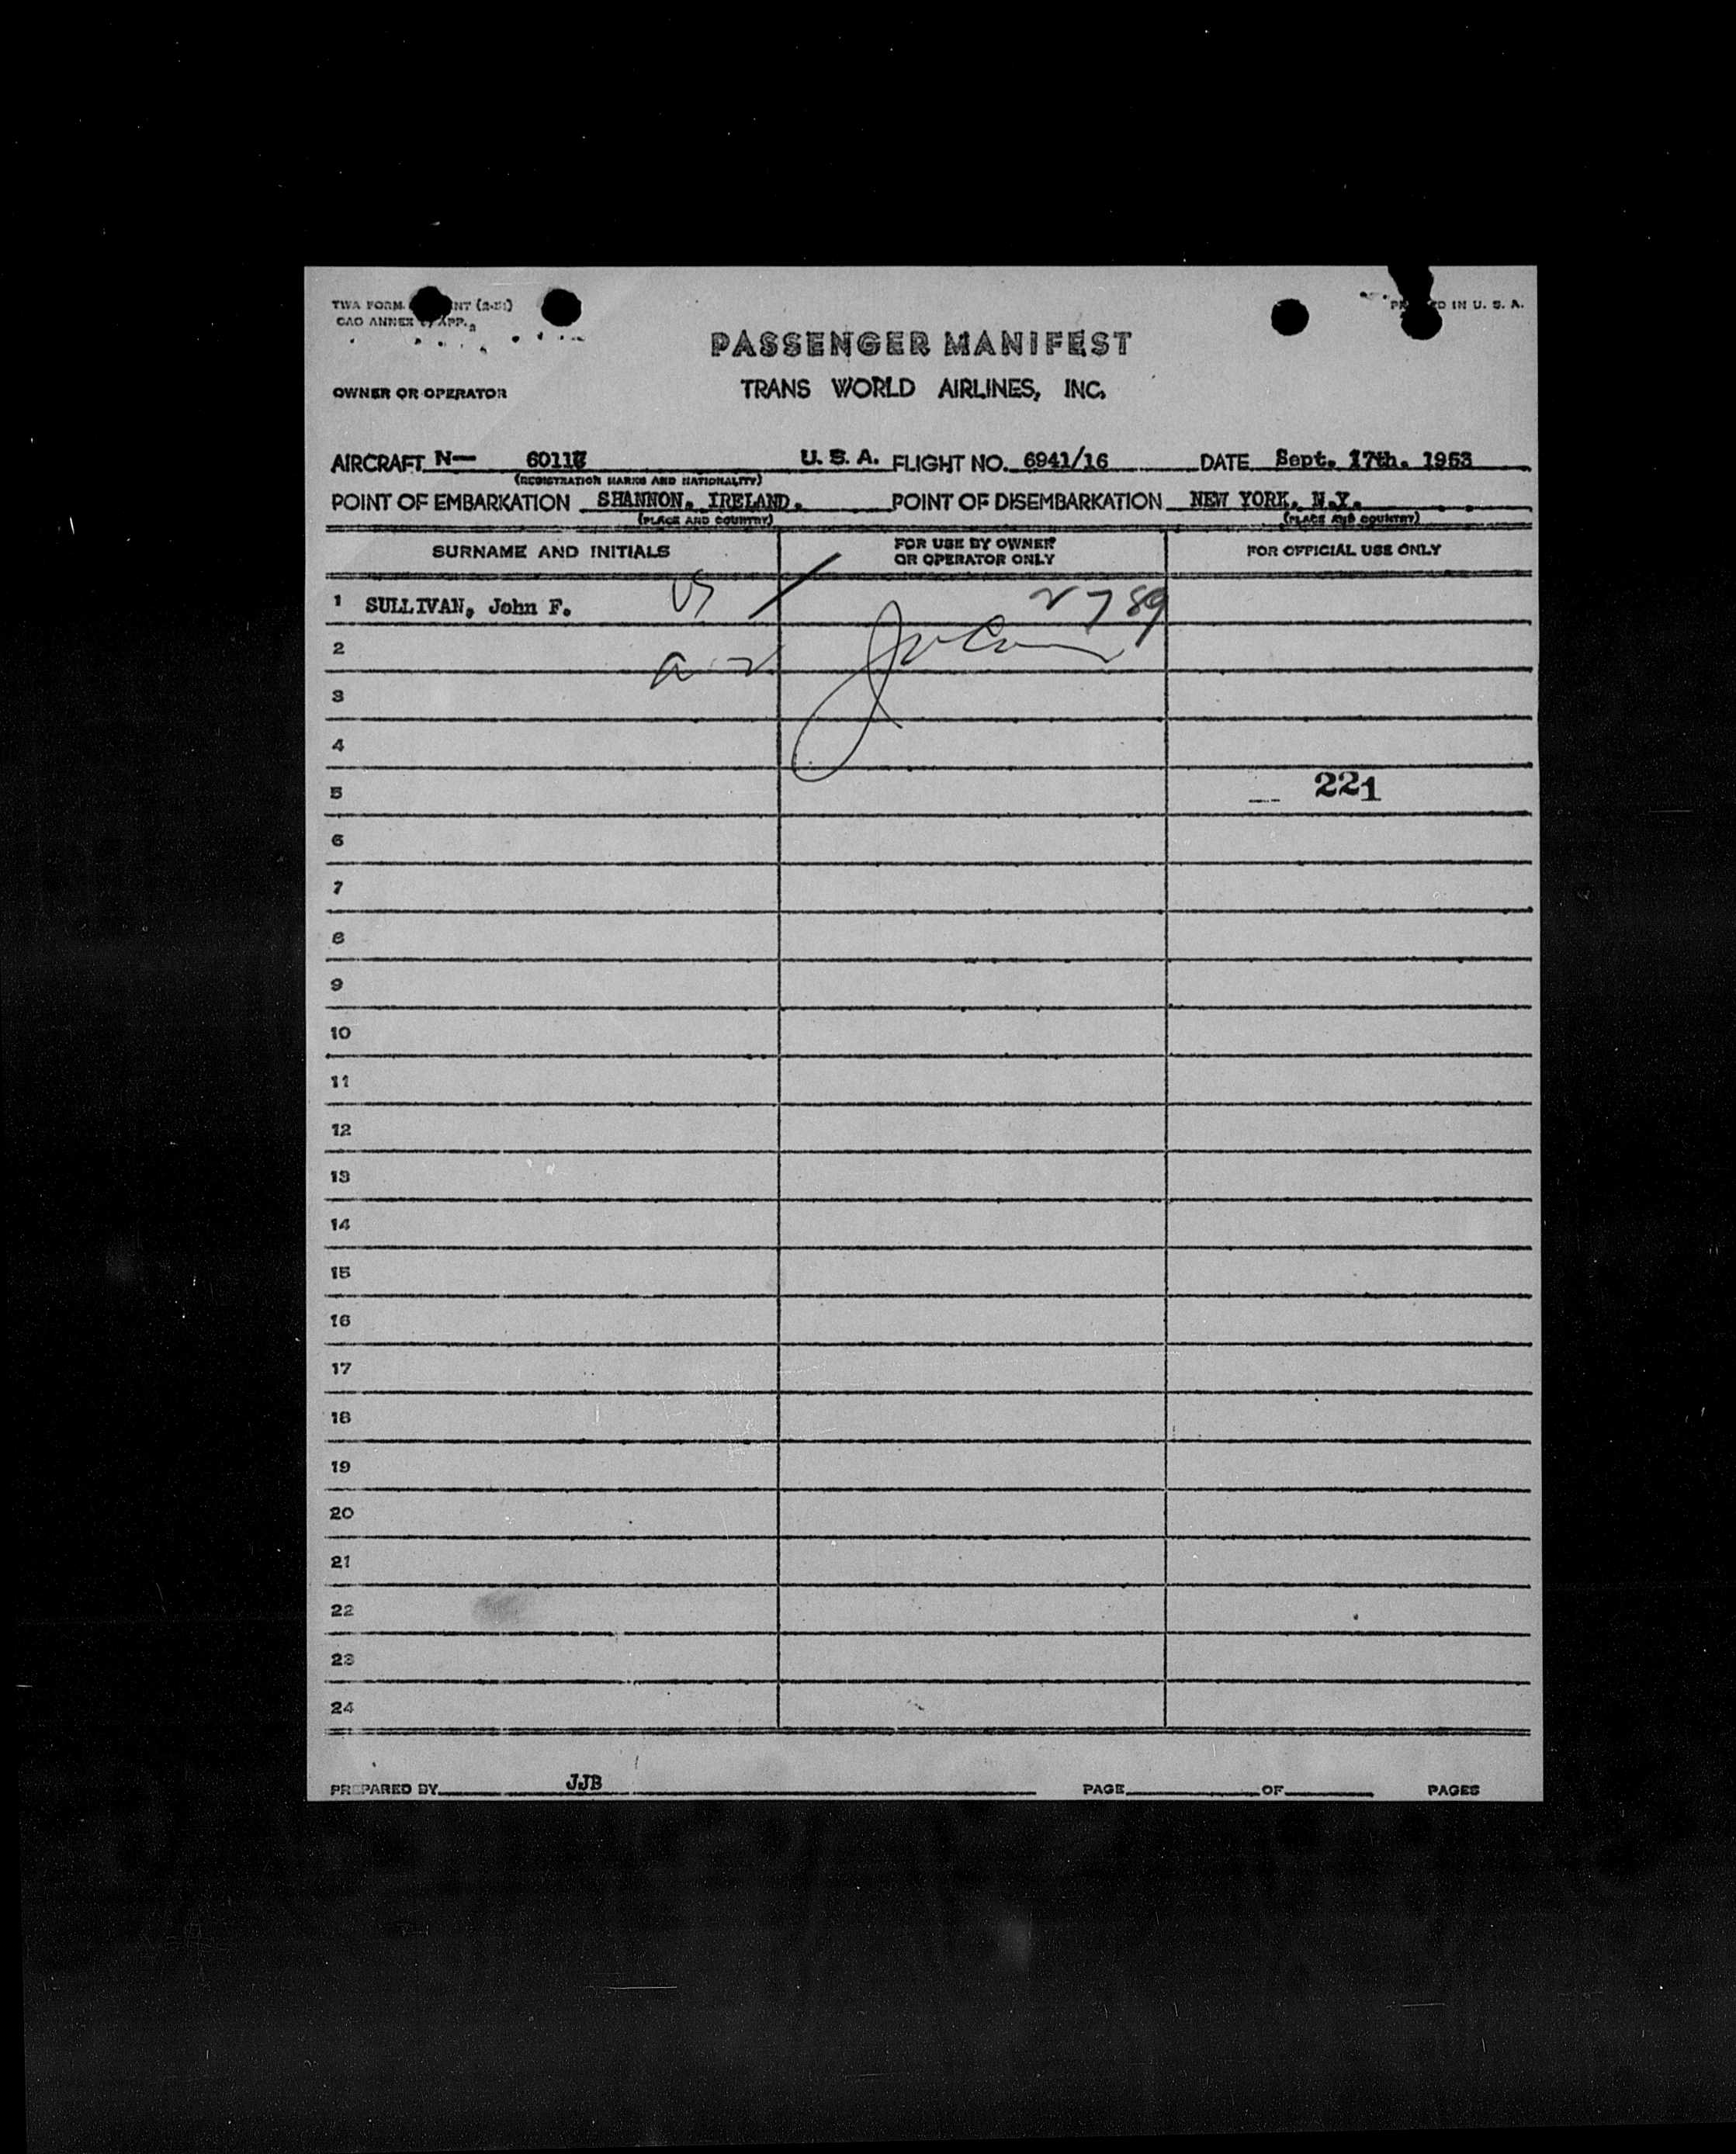 TWA FORM NT (2-51)
CAO ANNEX 9, APP. 2
PRINTED IN U. S. A.
PASSENGER MANIFEST
OWNER OR OPERATOR TRANS WORLD AIRLINES, INC.
AIRCRAFT N— U. S. A. FLIGHT NO. 6941/16 DATE Sept. 17th. 1953
(REGISTRATION MARKS AND NATIONALITY)
POINT OF EMBARKATION SHANNON, IRELAND. POINT OF DISEMBARKATION NEW YORK, N.Y.
(PLACE AND COUNTRY) (PLACE AND COUNTRY)
SURNAME AND INITIALS FOR USE BY OWNER OR OPERATOR ONLY FOR OFFICIAL USE ONLY
1 SULLIVAN, John F. US 2789
2
3
4
5 221
6
7
8
9
10
11
12
13
14
15
16
17
18
19
20
21
22
23
24
PREPARED BY JJB PAGE OF PAGES